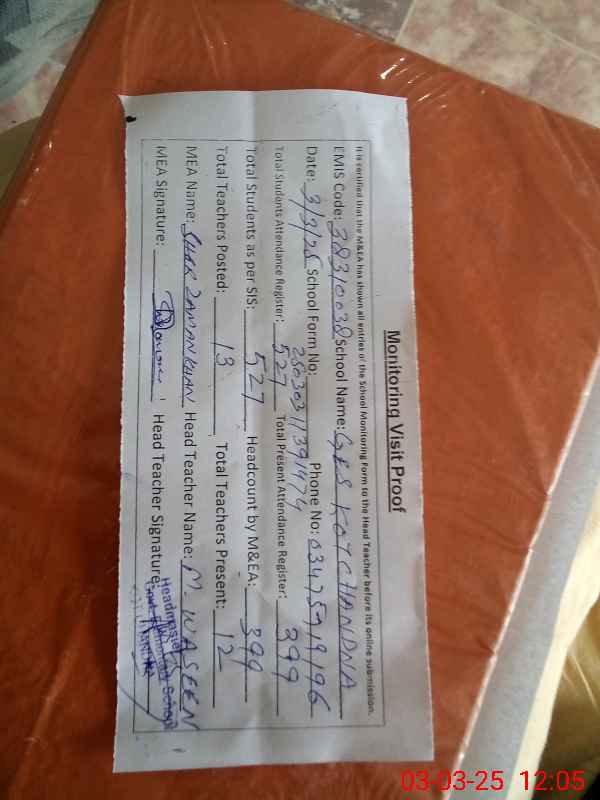 Monitoring Visit Proof
It is certified that the M&EA has shown all entries of the School Monitoring Form to the Head Teacher before its online submission.
EMIS Code: 38310038 School Name: GES KOT CHANDNA
Date: 3/3/25 School Form No: 25030311391474 Phone No: 03475919196
Total Students Attendance Register: 527 Total Present Attendance Register: 399
Total Students as per SIS: 527 Headcount by M&EA: 399
Total Teachers Posted: 13 Total Teachers Present: 12
MEA Name: SHER ZAMAN KHAN Head Teacher Name: M. WASEEN
MEA Signature: Head Teacher Signature:
Headmaster
Govt. Elementary School
03-03-25 12:05